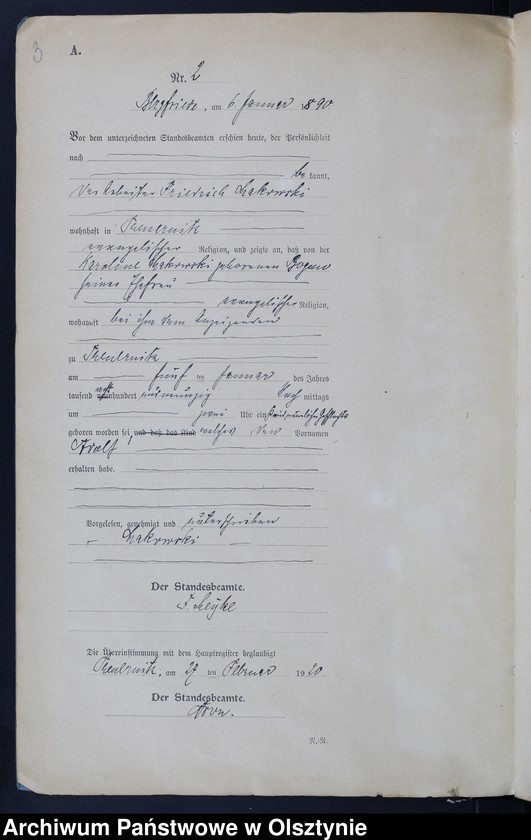 3
A.
Nr. 2
Bergfriede, am 6. Januar 1890
Vor dem unterzeichneten Standesbeamten erschien heute, der Persönlichkeit
nach
be kannt,
der Arbeiter Friedrich Lukowski
wohnhaft in
evangelischer Religion, und zeigte an, daß von der
Karoline Lukowski geborenen
seiner Ehefrau
evangelischer Religion,
wohnhaft bei ihm dem Anzeigenden
zu
am fünf ten Januar des Jahres
tausend acht hundert neunzig Nach mittags
um zwei Uhr ein Kind männlichen Geschlechts
geboren worden sei, und daß das Kind welches den Vornamen
Adolf
erhalten habe.
Vorgelesen, genehmigt und unterschrieben
Lukowski
Der Standesbeamte.
Die Übereinstimmung mit dem Hauptregister beglaubigt
am 27 ten Februar 1920.
Der Standesbeamte.
N.-R.
Archiwum Państwowe w Olsztynie